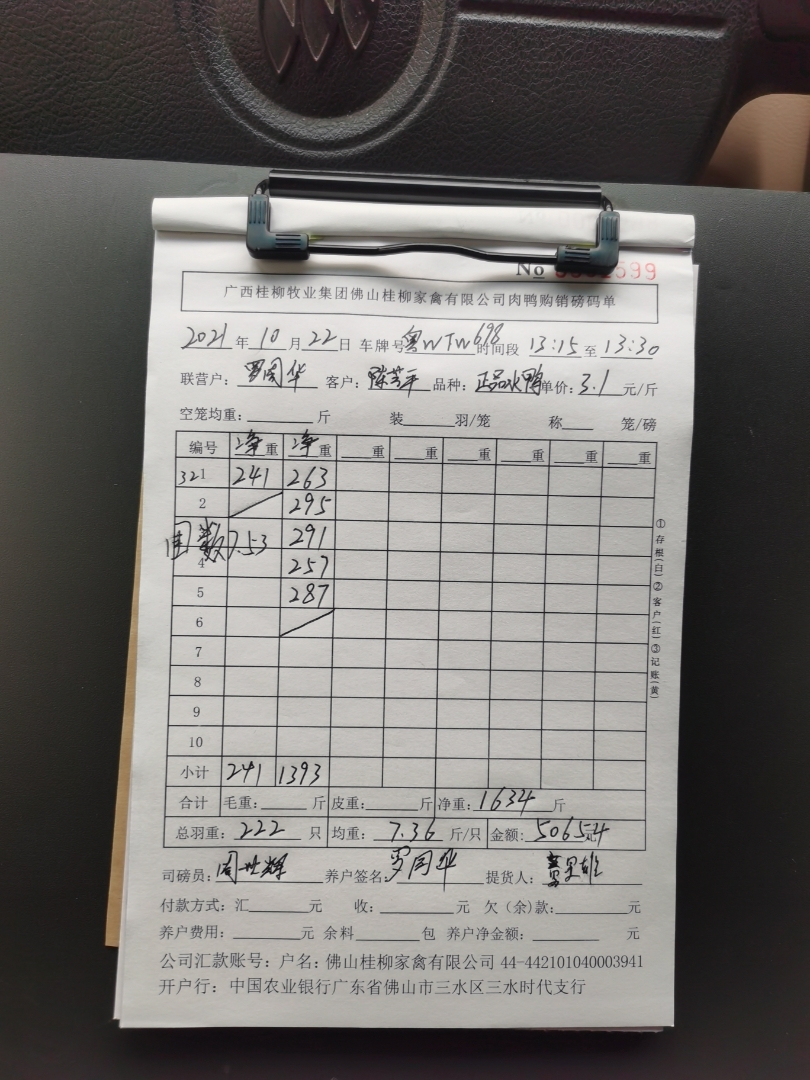 No 599
广西桂柳牧业集团佛山桂柳家禽有限公司肉鸭购销磅码单
2021年10月22日 车牌号粤WTW698时间段 13:15至13:30
联营户：罗同华 客户：陈芳平 品种：正品水鸭单价：3.1元/斤
空笼均重：______斤 装______羽/笼 称___笼/磅
编号 净重 净重 ___重 ___重 ___重 ___重 ___重 ___重
321 241 263
2 295
围数7.53 291
4 257
5 287
6
7
8
9
10
小计 241 1393
合计 毛重：______斤 皮重：______斤 净重：1634斤
总羽重：222只 均重：7.36斤/只 金额：5065.4元
司磅员： 养户签名：罗同华 提货人：
付款方式：汇______元 收：______元 欠（余）款：______元
养户费用：______元 余料______包 养户净金额：______元
公司汇款账号：户名：佛山桂柳家禽有限公司 44-442101040003941
开户行：中国农业银行广东省佛山市三水区三水时代支行
①存根（白）②客户（红）③记账（黄）